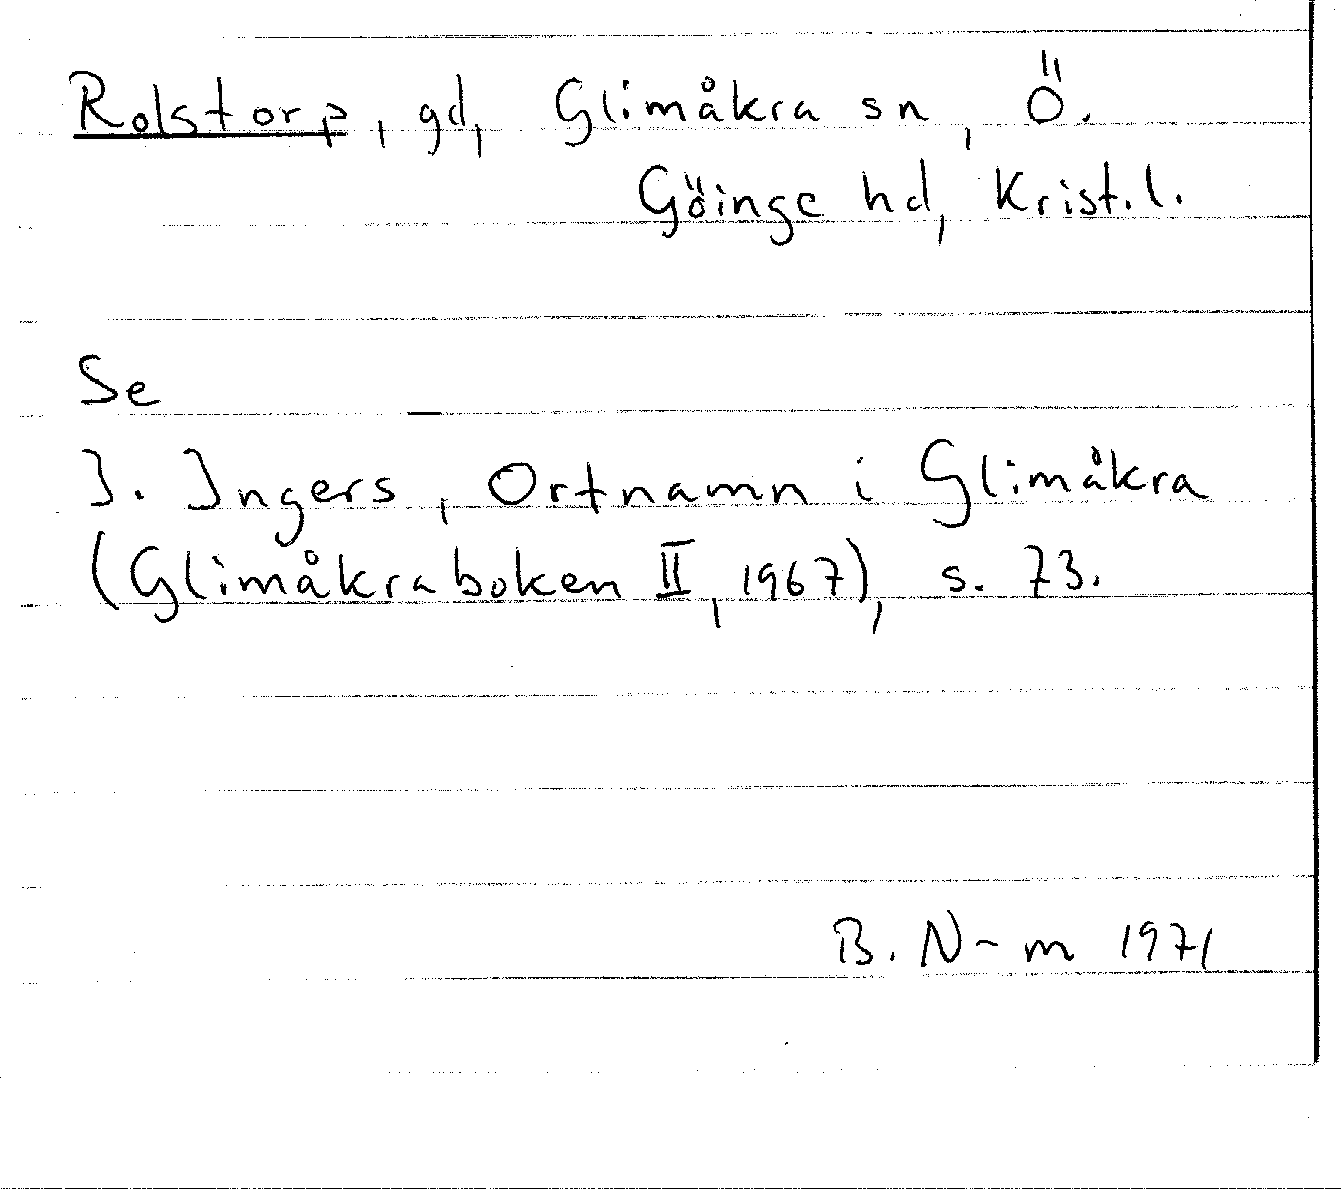 Rolstorp, gd, Glimåkra sn, Ö.
Göinge hd, Krist.l.
Se
I. Ingers, Ortnamn i Glimåkra
(Glimåkraboken II, 1967), s. 73.
B. N-m 1971